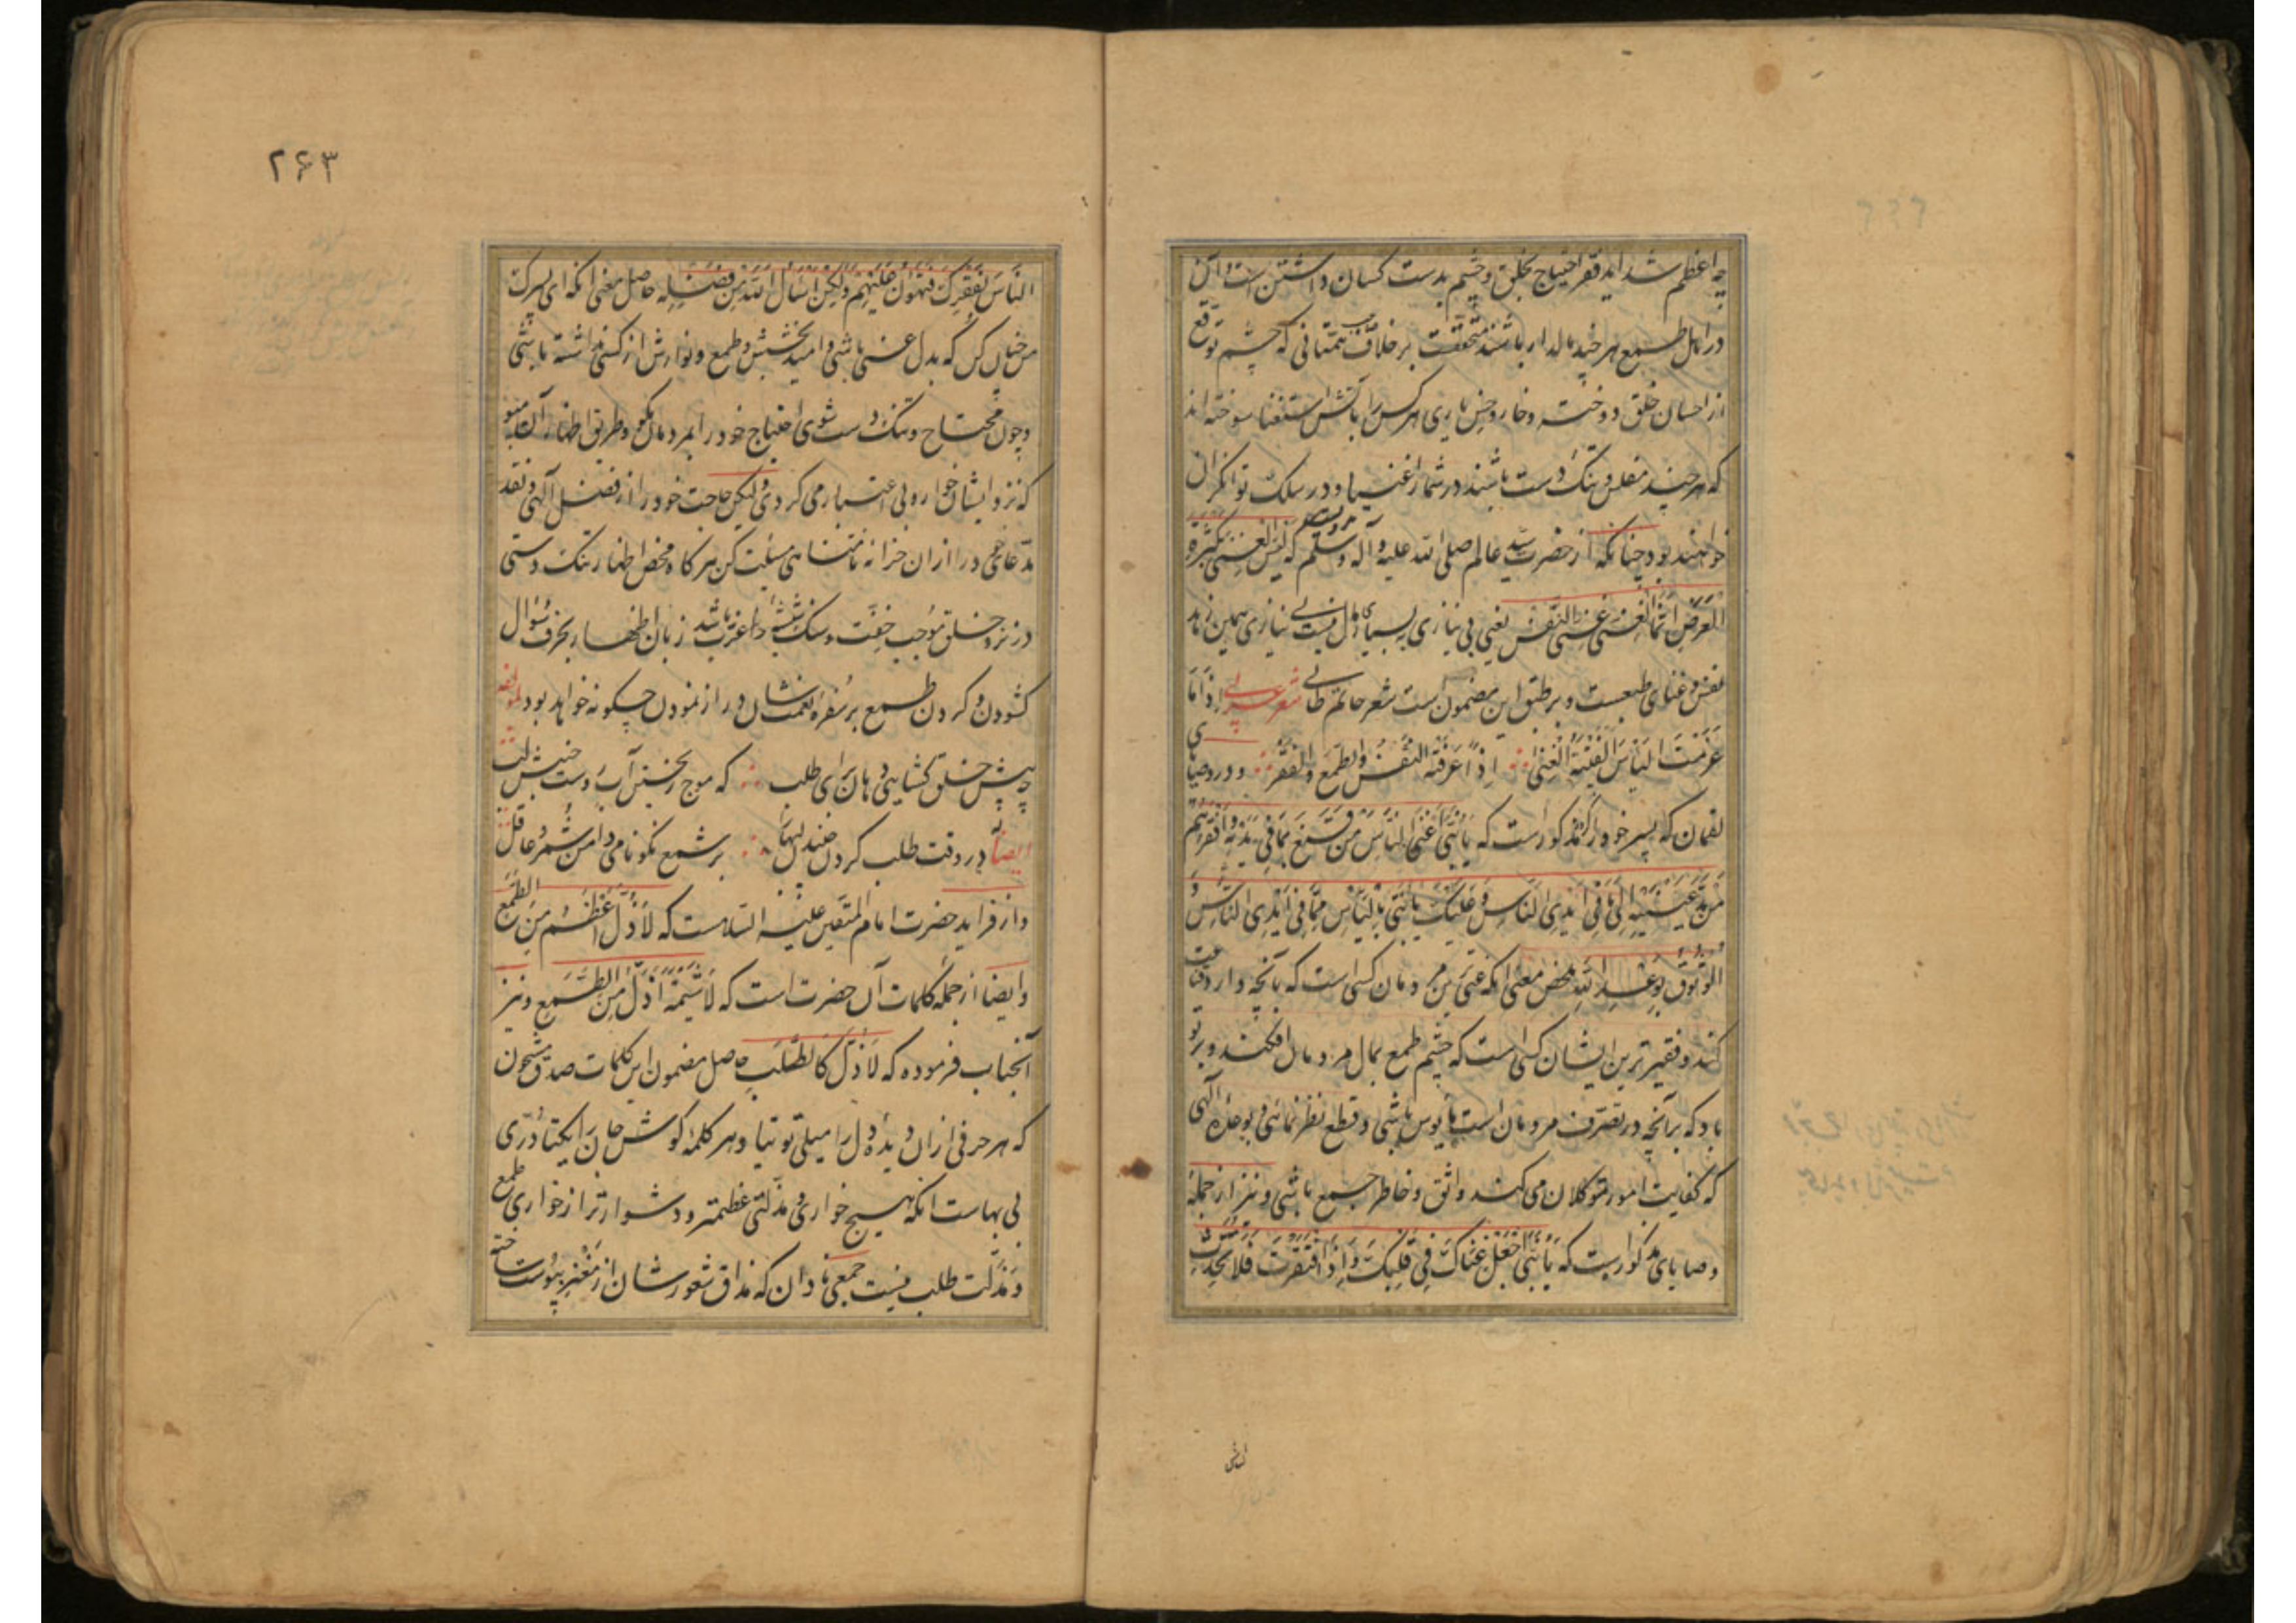 چه اعظم شداید فقر احتیاج بخلق و چشم بدست کسان داشتن است و این
در اهل طمع هر چند مالدار باشند متحقق است بر خلاف همتانی که چشم توقع
از احسان خلق دوخته و خار و خس یاری هر کس را بآتش استغنا سوخته اند
که هر چند مفلس و تنک دست باشند در شمار اغنیا و در سلک توانکران
خواهند بود چنانکه از حضرت سید عالم صلی الله علیه و آله وسلم مرویست که لیس الغنی بکثرة
العرض انما الغنی غنی النفس یعنی بی نیازی به بسیاری مال نیست بی نیازی همین زهد
نفس و غنای طبعست و بر طبق این مضمون است شعر حاتم طائی شعر عربی اذا ما
عزمت الیأس الفیته الغنی اذا عرفته النفس والطمع والفقر و در وصایای
لقمان که پسر خود را کرده مذکور است که یا بنی اغنی الناس من قنع بما فی یدیه و افقرهم
من مد عینیه الی ما فی ایدی الناس و علیک یا بنی بالیأس مما فی ایدی الناس و
الوثوق بوعد الله محض معنی انکه غنی ترین مردمان کسی است که بآنچه دارد قناعت
کند و فقیرترین ایشان کسی است که چشم طمع بمال مردمان افکند و بر تو
باد که بر آنچه در تصرف مردمان است مأیوس باشی و قطع نظر نمائی و بوعدۀ الهی
که کفایت امور متوکلان می کند واثق و خاطر جمع باشی و نیز از جمله
وصایای مذکور است که یا بنی اجعل غناک فی قلبک و اذا افتقرت فلا تحدث
الناس
۲۶۳
الناس بفقرک فتهون علیهم ولکن اسأل الله من فضله حاصل معنی انکه ای پسرک
من چنان کن که بدل غنی باشی و امید بخشش و طمع و نوازش از کسی نداشته باشی
و چون محتاج و تنک دست شوی احتیاج خود را بمردمان مکو و طریق اظهار آن مپو
که نزد ایشان خوار و بی اعتبار می کردی و لیکن حاجت خود را از فضل الهی و نقد
مدعای خود را از ان خزانه نامتناهی مسئلت کن هر کاه محض اظهار تنک دستی
در نزد خلق موجب خفت و سنک شیشه اعتبار باشد زبان اظهار بحرف سؤال
کشودن و کردن طمع بر سفره نعمتشان دراز نمودن چکونه خواهد بود لمؤلفه
چو پیش خلق کشایی دهان برای طلب که موج ریختن آبروست جنبش لب
ایضاً در وقت طلب کردن خندیدنها بر شمع نکونامی دامن شمر عاقل
و از فراید حضرت امام المتقین علیه السلامست که لا ذل اعظم من الطمع
و ایضا از جمله کلمات آن حضرت است که لا شیمة اذل من الطمع و نیز
آنجناب فرموده که لا ذل کالطلب حاصل مضمون این کلمات صدق مشحون
که هر حرفی از ان دیدۀ دل را میلی توتیا و هر کلمه کوش جان را یکتا دری
بی بهاست انکه هیچ خواری و مذلتی عظیمتر و دشوارتر از خواری طمع
و مذلت طلب نیست جمعی نادان که مذاق شعورشان از مغز پوست نشناخته